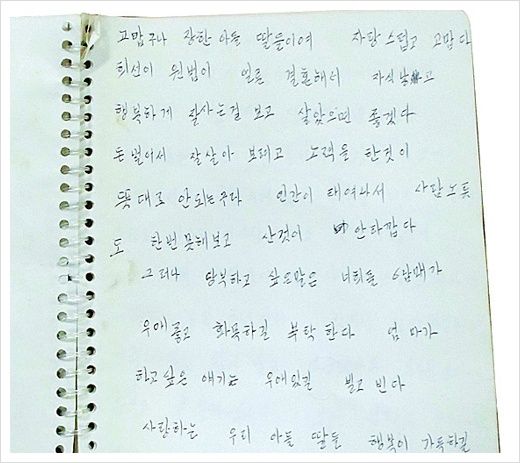 고맙구나 장한 아들 딸들이여 자랑스럽고 고맙다
희선이 원법이 얼른 결혼해서 자식낳고
행복하게 잘사는걸 보고 살았으면 좋겠다
돈벌어서 잘살아 보려고 노력을 한것이
뜻대로 안되는구라 인간이 태여나서 사람노릇
도 한번 못해보고 산것이 안타깝다
그러나 당부하고 싶은말은 너희들 6남매가
우애 좋고 화목하길 부탁한다 엄마가
하고싶은 얘기는 우애있길 빌고 빈다
사랑하는 우리 아들 딸들 행복이 가득하길